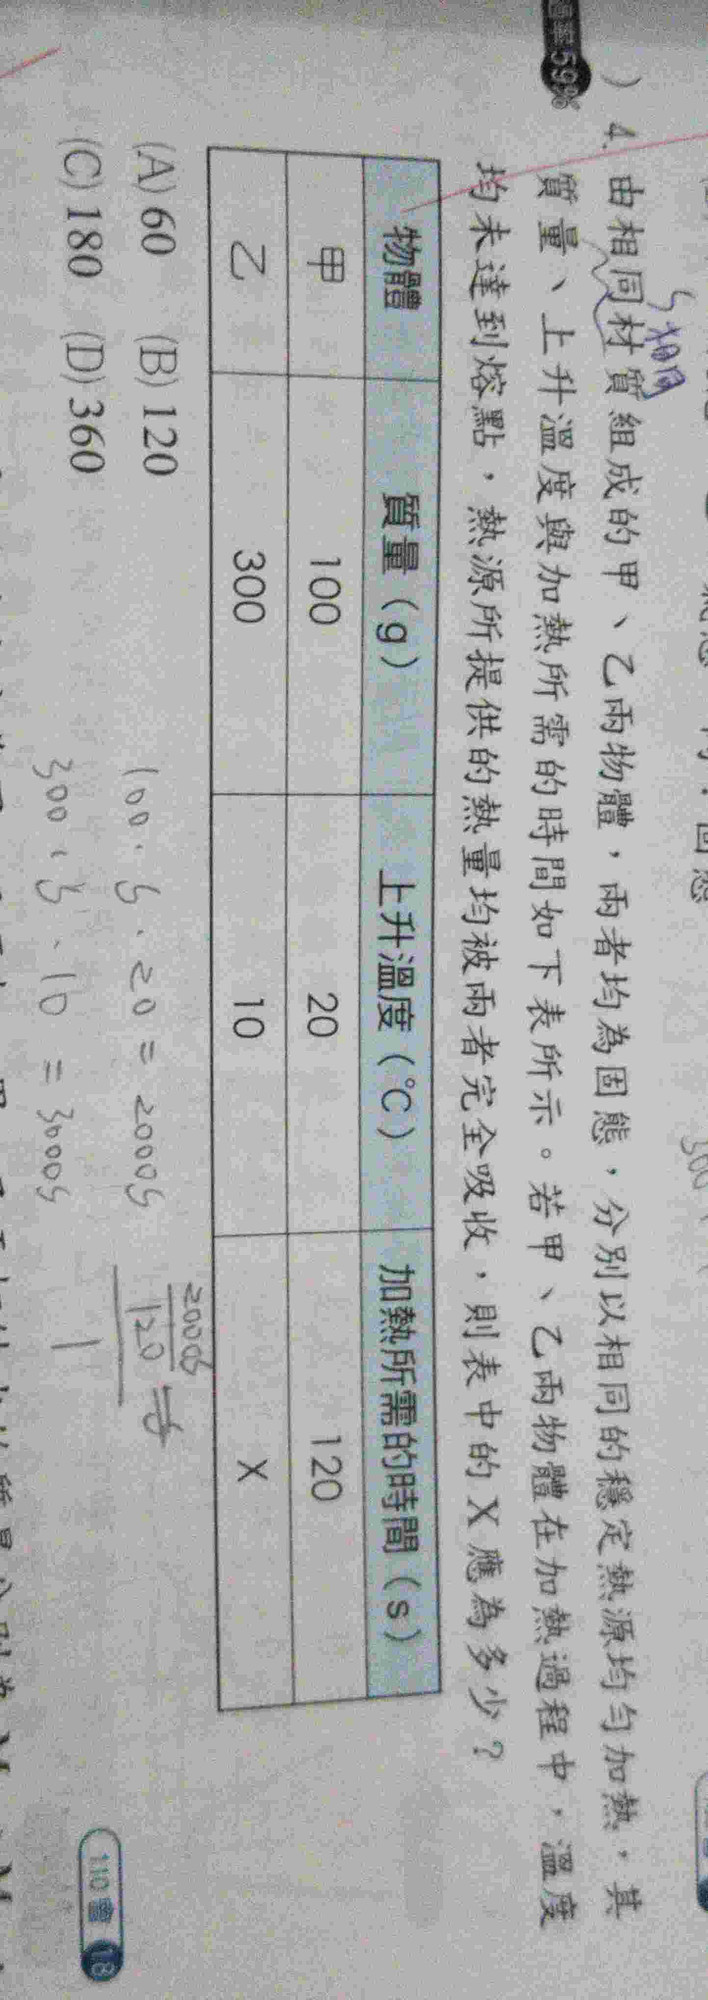 59%
) 4. 由相同材質組成的甲、乙兩物體，兩者均為固態，分別以相同的穩定熱源均勻加熱，其
S相同
質量、上升溫度與加熱所需的時間如下表所示。若甲、乙兩物體在加熱過程中，溫度
均未達到熔點，熱源所提供的熱量均被兩者完全吸收，則表中的X應為多少？
物體 質量（g） 上升溫度（℃） 加熱所需的時間（s）
甲 100 20 120
乙 300 10 X
(A) 60 (B) 120
(C) 180 (D) 360
100 · S · 20 = 2000S
300 · S · 10 = 3000S
2000S
120
110會 18